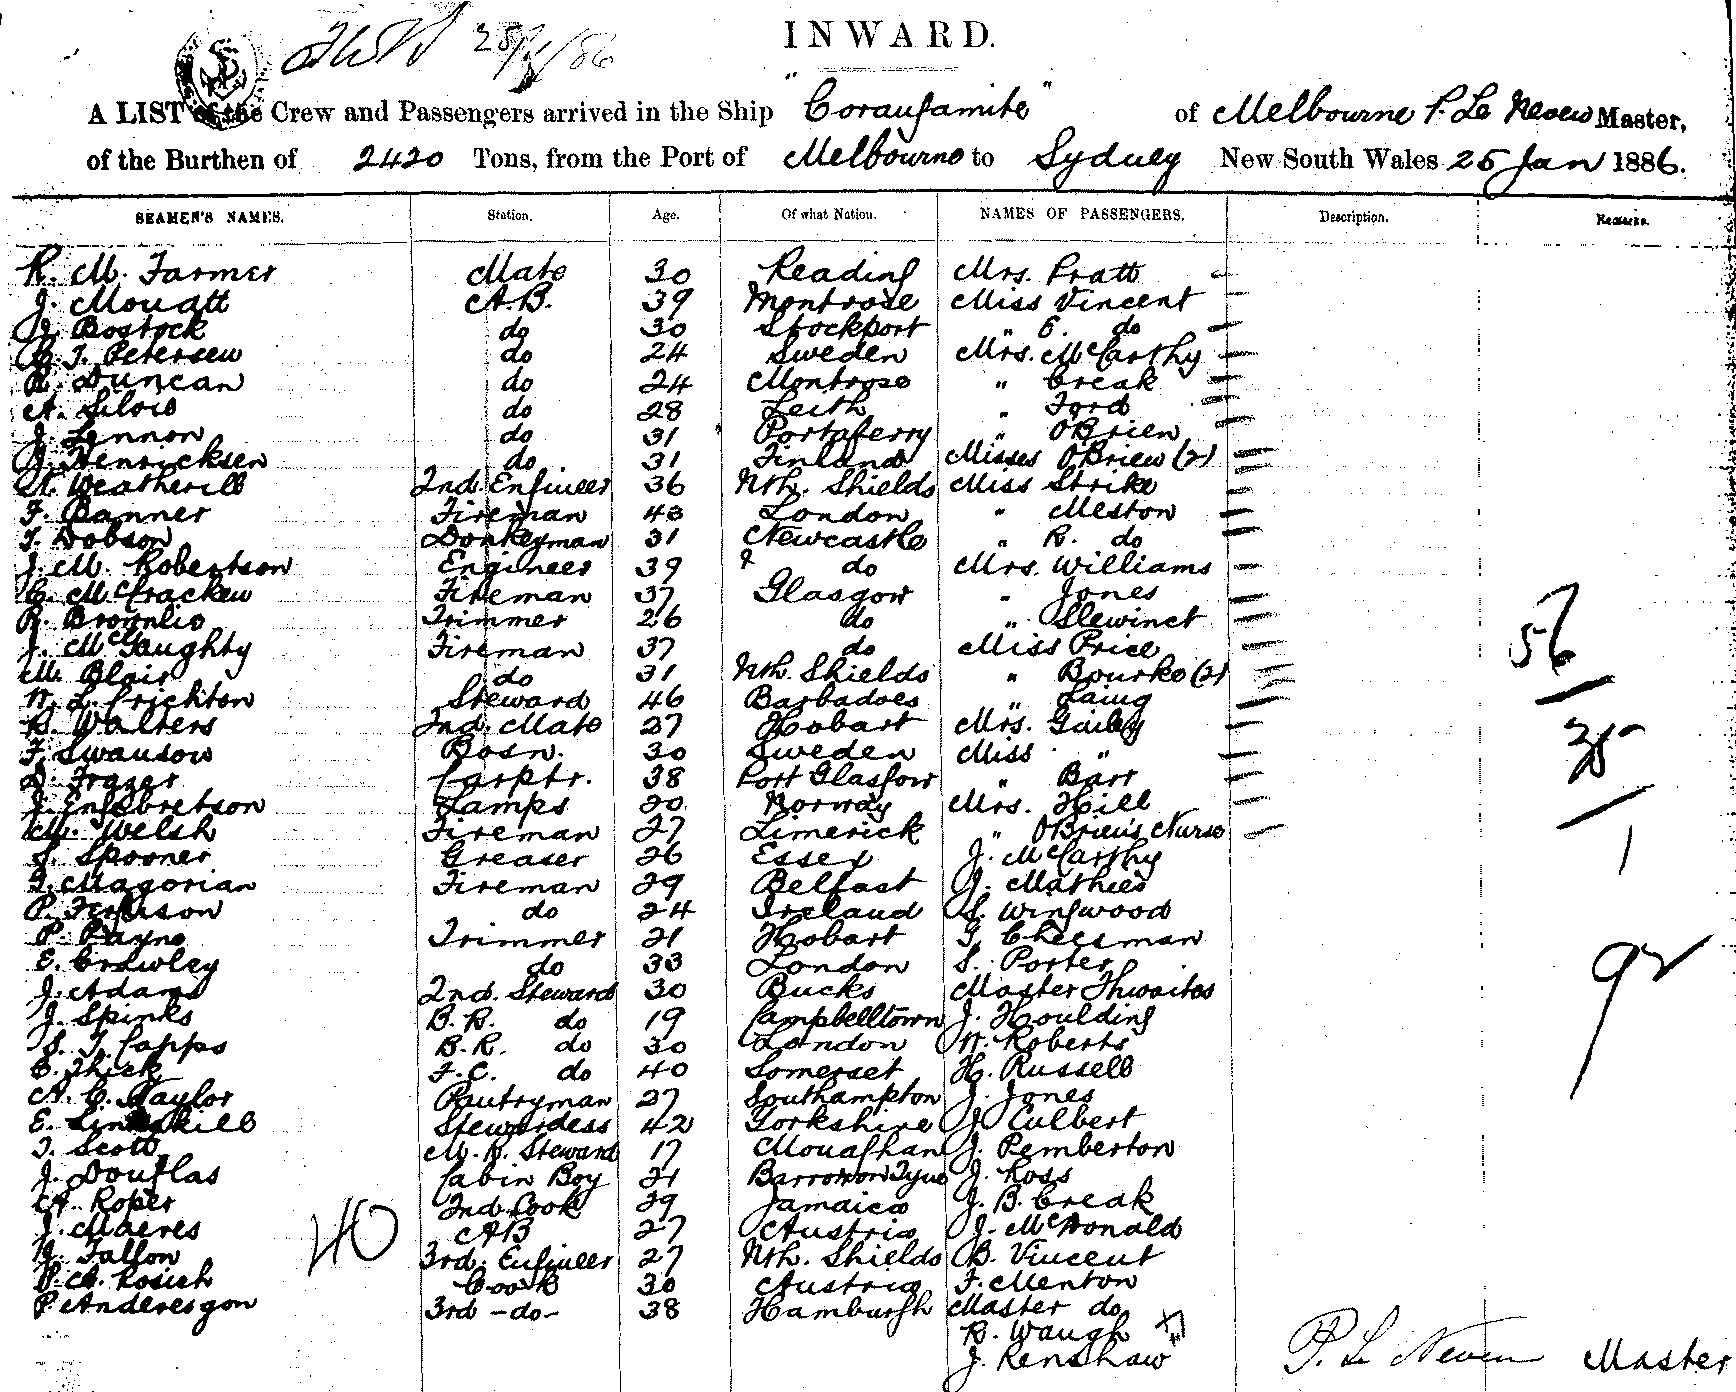 25/1/86
INWARD.
A LIST of the Crew and Passengers arrived in the Ship "Corangamite" of Melbourne P. Le Neveu Master,
of the Burthen of 2420 Tons, from the Port of Melbourne to Sydney New South Wales 25 Jan 1886.
SEAMEN'S NAMES. Station. Age. Of what Nation. NAMES OF PASSENGERS. Description. Remarks.
R. M. Farmer Mate 30 Reading Mrs. Pratt
J. Mouatt A.B. 39 Montrose Miss Vincent
J. Bostock do 30 Stockport " E. do
T. Petersen do 24 Sweden Mrs. McCarthy
R. Duncan do 24 Montrose " Creak
A. Silvis do 28 Leith " Ford
J. Lennon do 31 Portaferry " OBrien
J. Henricksen do 31 Finland Misses OBrien (2)
Weatherill 2nd. Engineer 36 Nth. Shields Miss Strike
F. Banner Fireman 43 London " Meston
T. Dobson Donkeyman 31 Newcastle " R. do
J. M. Robertson Engineer 39 do Mrs. Williams
C. McCracken Fireman 37 Glasgow " Jones
R. Brownlie Trimmer 26 do " Slewinct
J. McGaughty Fireman 37 do Miss Price
M. Blair do 31 Nth. Shields " Bourke (2)
W. L. Crichton Steward 46 Barbadoes " Laing
B. Walters 2nd. Mate 27 Hobart Mrs. Gailey
F. Swanson Bosn. 30 Sweden Miss "
D. Frazer Carptr. 38 Port Glasgow " Barr
J. Engebretson Lamps 20 Norway Mrs. Hill
M. Welsh Fireman 27 Limerick " OBrien's Nurse
S. Spooner Greaser 26 Essex J. McCarthy
T. Magorian Fireman 29 Belfast J. Mathies
P. Ferguson do 24 Ireland S. Wingwood
P. Payne Trimmer 21 Hobart G. Cheesman
E. Crawley do 33 London S. Porter
J. Adams 2nd. Steward 30 Bucks Master Thwaites
J. Spinks B.R. do 19 Campbelltown J. Houlding
S. T. Capps B.R. do 30 London W. Roberts
E. Thick F.C. do 40 Somerset H. Russell
A. C. Taylor Pantryman 27 Southampton J. Jones
E. Linskill Stewardess 42 Yorkshire J. Culbert
T. Scott M.R. Steward 17 Monaghan J. Pemberton
J. Douglas Cabin Boy 21 Barrow on Tyne J. Ross
A. Roper 2nd. Cook 29 Jamaica J. B. Creak
J. Maeres AB 27 Austria J. McDonald
H. Fallon 3rd. Engineer 27 Nth. Shields B. Vincent
P. A. Cosich Cook 30 Austria F. Menton
P. Anderesgon 3rd -do- 38 Hamburgh Master do
R. Waugh
J. Renshaw
40
56
35
1
92
P. Le Neveu Master